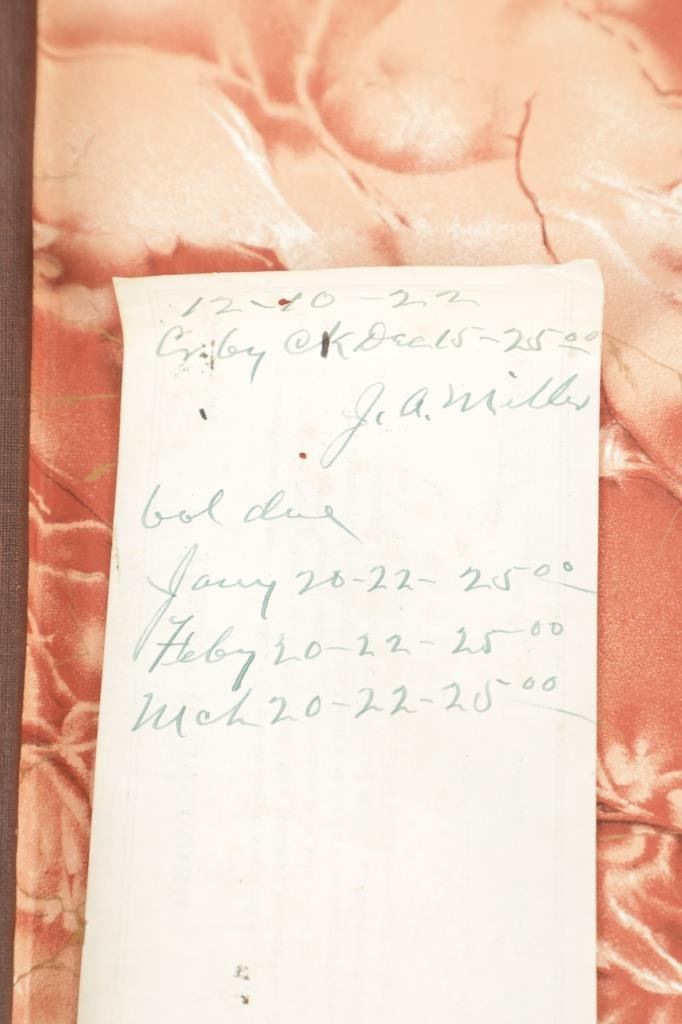 12-10-22
Cr by CK Dec 15-25 00
J. A. Miller
bal due
Jany 20-22-25 00
Feby 20-22-25 00
Mch 20-22-25 00